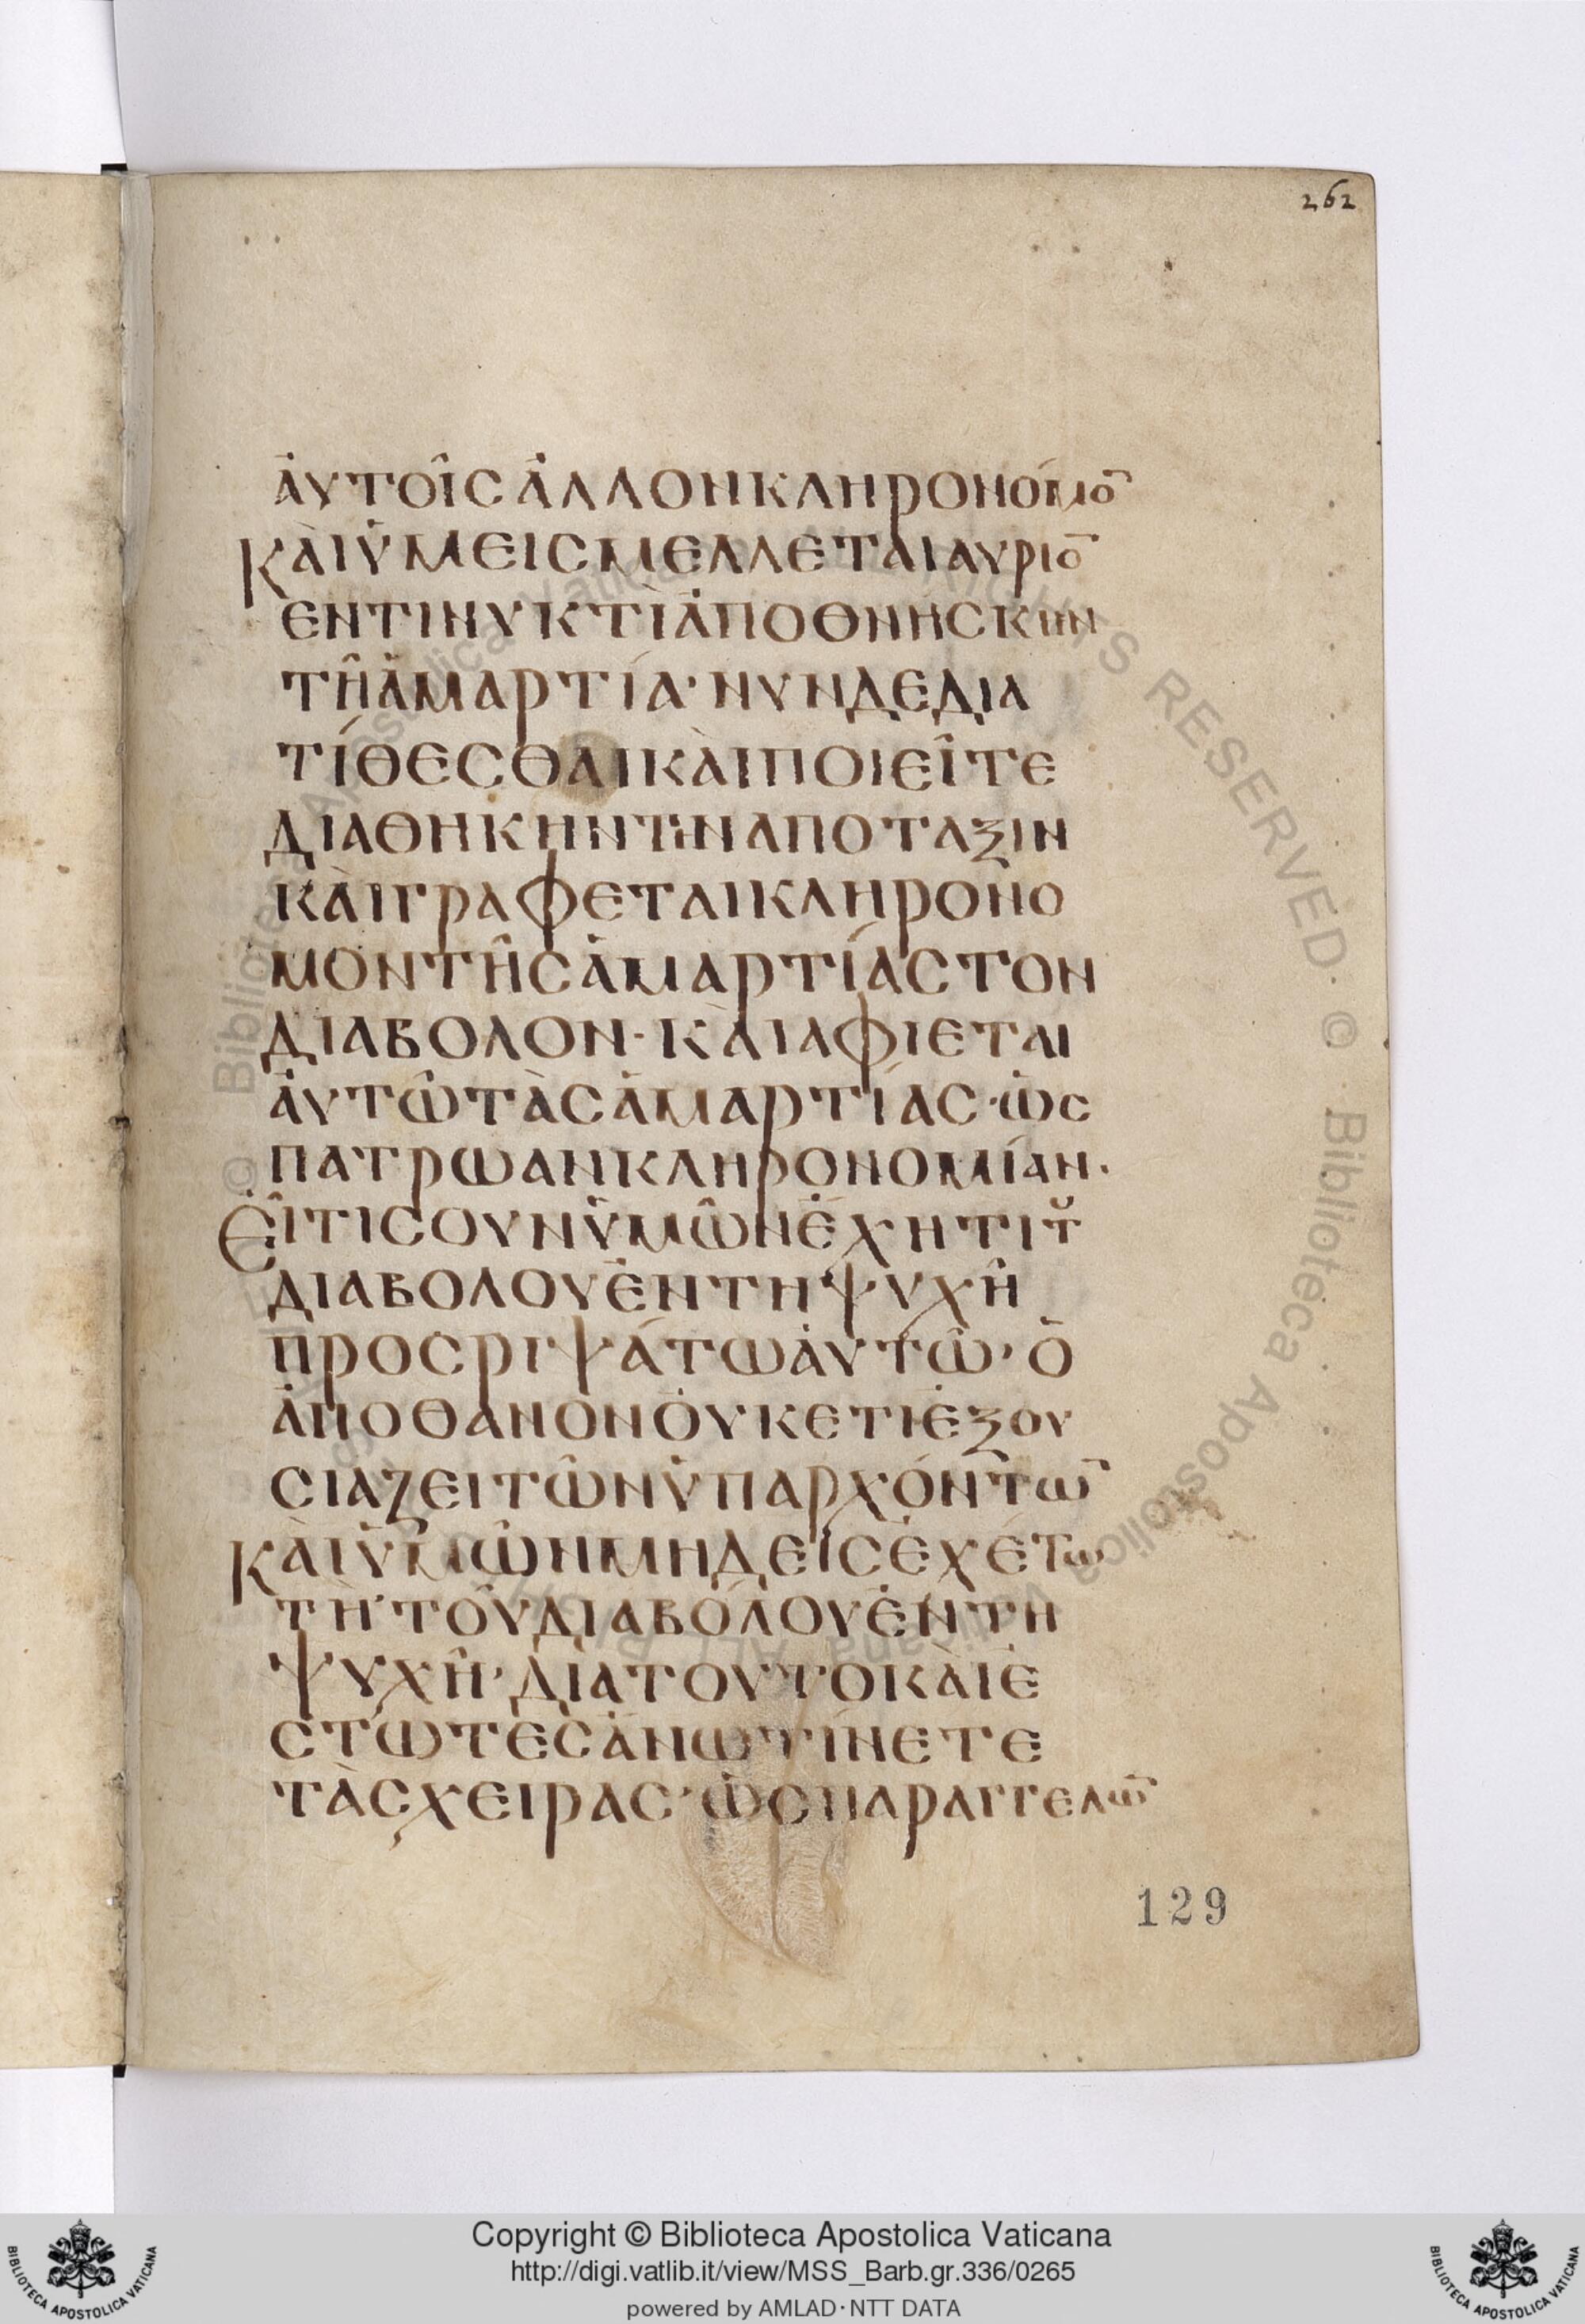 262
ἀυτοῖς ἄλλον κληρονόμο̅
Κὰι ὑμεις μελλεται αυριο̅
εν τι νυκτὶ ἀποθνησκιν
τῆ ἁμαρτία· νυν δε δια
τίθεσθαι κὰι ποιεῖτε
διαθηκην την αποταξιν
κὰι γραφεται κληρονο
μον τῆς ἁμαρτίας τον
διαβολον· κὰι αφιεται
ἀυτῶ τὰς ἁμαρτίας· ὡς
πατρωαν κληρονομίαν·
Ἐῖ τις ουν ὑμῶν ἔχη τι τȣ
διαβολου ἐν τη ψυχῆ
προσριψάτω ἀυτῶ· ὁ
ἀποθανον ὀυκετι ἐξου
σιαζει των ὑπαρχόντω̅
Κὰι ὑμῶν μηδεις ἐχέτω
τὴ τοῦ διαβόλου ἐν τη
ψυχῆ· δια τουτο κὰι ἑ
στώτες ἄνω τίνετε
τὰς χειρας· ὡς παραγγελω̅
129
© Biblioteca Apostolica Vaticana
ALL RIGHTS RESERVED.
Copyright © Biblioteca Apostolica Vaticana
http://digi.vatlib.it/view/MSS_Barb.gr.336/0265
powered by AMLAD · NTT DATA
BIBLIOTECA APOSTOLICA VATICANA
BIBLIOTECA APOSTOLICA VATICANA